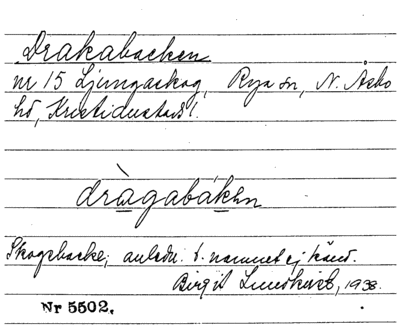 Drakabacken
nr 15 Ljungaskog, Rya sn, N. Åsbo
hd, Kristianstads l.
dràgabákęn
Skogsbacke, anledn. t. namnet ej känd.
Birgit Lundkvist, 1938.
Nr 5502.